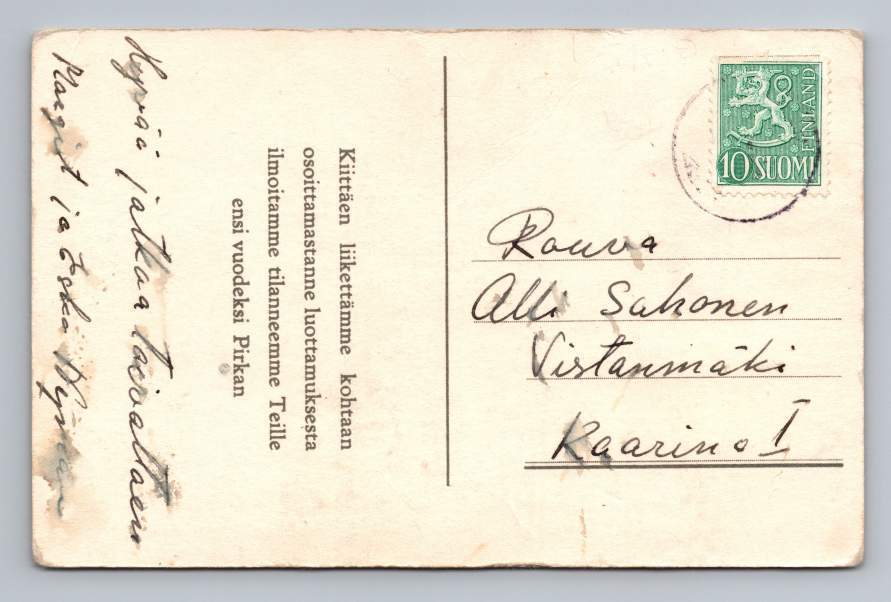 Hyvää jatkoa toivottaen
Margit ja Esko
Kiittäen liikettämme kohtaan
osoittamastanne luottamuksesta
ilmoitamme tilanneemme Teille
ensi vuodeksi Pirkan
FINLAND
10 SUOMI
Rouva
Alli Sahonen
Vistanmäki
Kaarina I